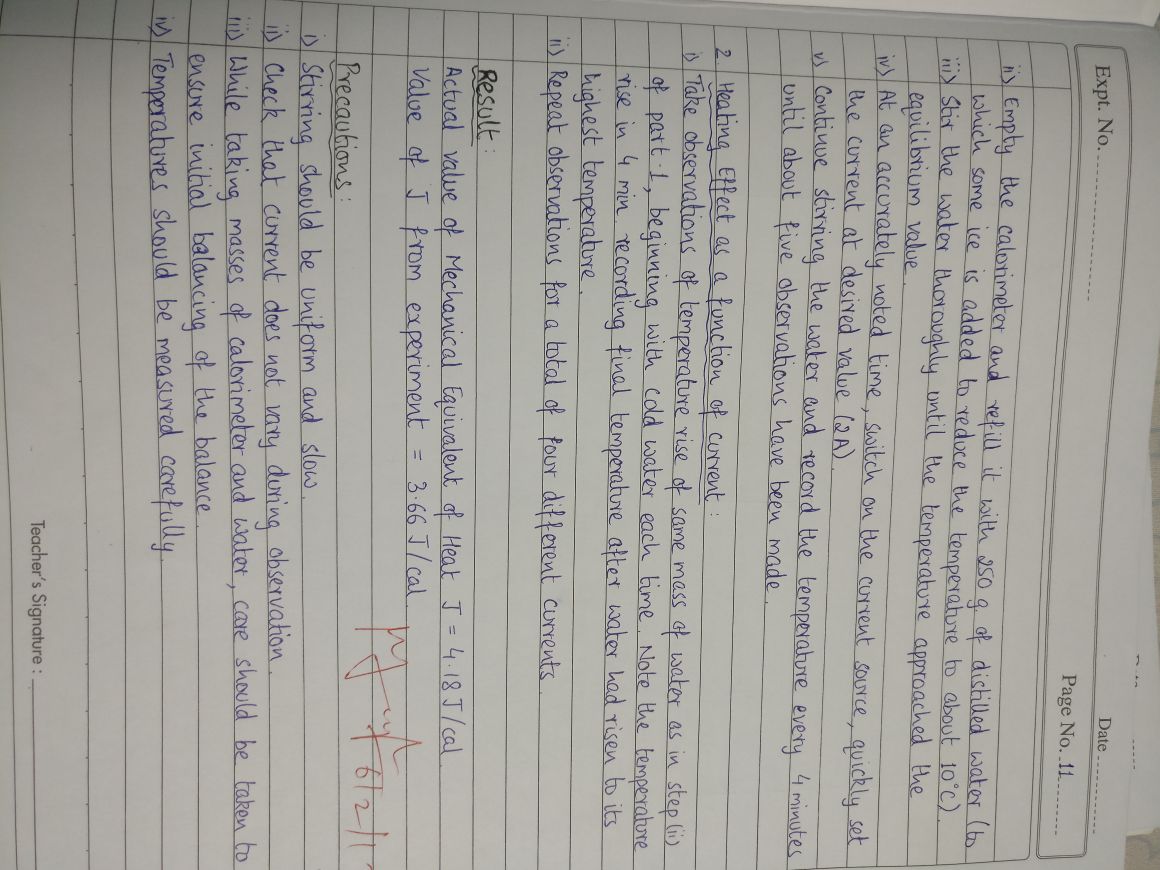 Expt. No.
Date
Page No. 11
ii) Empty the calorimeter and refill it with 250 g. of distilled water (to
which some ice is added to reduce the temperature to about 10°C).
iii) Stir the water thoroughly until the temperature approached the
equilibrium value.
iv) At an accurately noted time, switch on the current source, quickly set
the current at desired value (2A).
v) Continue stirring the water and record the temperature every 4 minutes
until about five observations have been made.
2 Heating Effect as a function of current:
i) Take observations of temperature rise of same mass of water as in step (ii)
of part-1, beginning with cold water each time. Note the temperature
rise in 4 min. recording final temperature after water had risen to its
highest temperature.
ii) Repeat observations for a total of four different currents.
Result:
Actual value of Mechanical Equivalent of Heat J = 4.18 J/cal.
Value of J from experiment = 3.66 J/cal.
Precautions:
i) Stirring should be uniform and slow.
ii) Check that current does not vary during observation.
iii) While taking masses of calorimeter and water, care should be taken to
ensure initial balancing of the balance.
iv) Temperatures should be measured carefully.
Teacher's Signature :